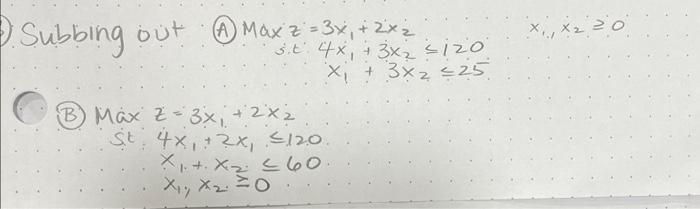 Subbing out Ⓐ Max z = 3x₁ + 2x₂ x₁, x₂ ≥ 0
s.t. 4x₁ + 3x₂ ≤ 120
x₁ + 3x₂ ≤ 25
Ⓑ Max z = 3x₁ + 2x₂
S.t. 4x₁ + 2x₁ ≤ 120
x₁ + x₂ ≤ 60
x₁, x₂ ≥ 0